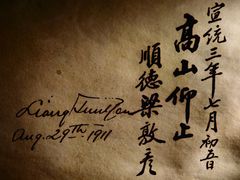 宣統三年七月初
高山仰止
順德梁敦彥
Liang Tun Yen
Aug. 29th 1911